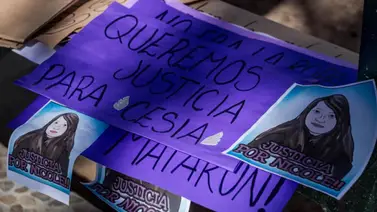 QUEREMOS
JUSTICIA
PARA CESIA
MATARON!
JUSTICIA
POR NICOLE!
JUSTICIA
POR NICOLE!
JUSTICIA